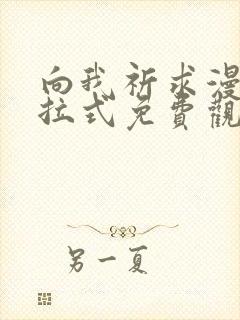 向我祈求漫
拉式免費觀
另一夏